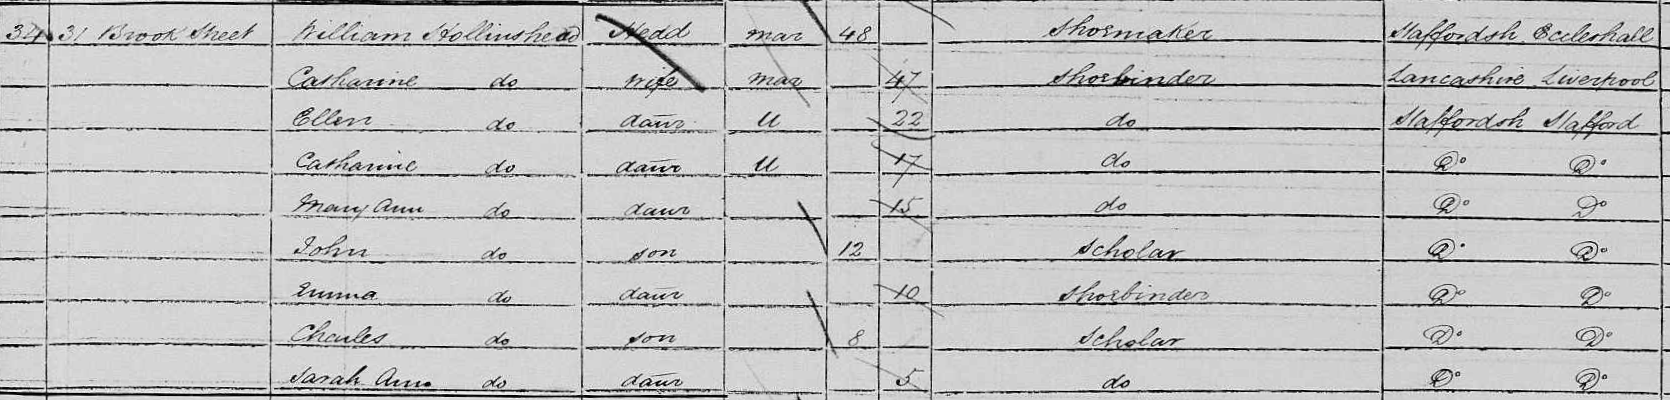 34 31 Brook Street William Hollinshead Hedd mar 48 Shoemaker Staffordsh Eccleshall
Catharine do Wife mar 47 Shoebinder Lancashire Liverpool
Ellen do daur U 22 do Staffordsh Stafford
Catharine do daur U 17 do Do Do
Mary Ann do daur 15 do Do Do
John do son 12 Scholar Do Do
Emma do daur 10 Shoebinder Do Do
Charles do son 8 Scholar Do Do
Sarah Ann do daur 5 do Do Do